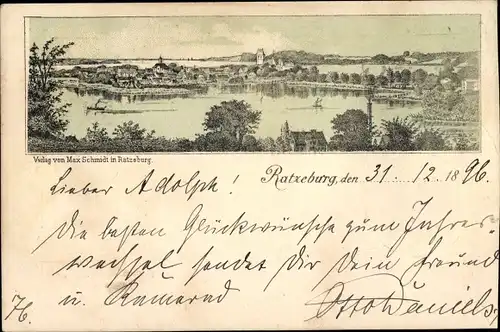 Verlag von Max Schmidt in Ratzeburg.
Ratzeburg, den 31. 12. 1896.
Lieber Adolph!
Die besten Glückwünsche zum Jahres-
wechsel sendet Dir Dein Freund
u. Kamerad
Otto Daniels